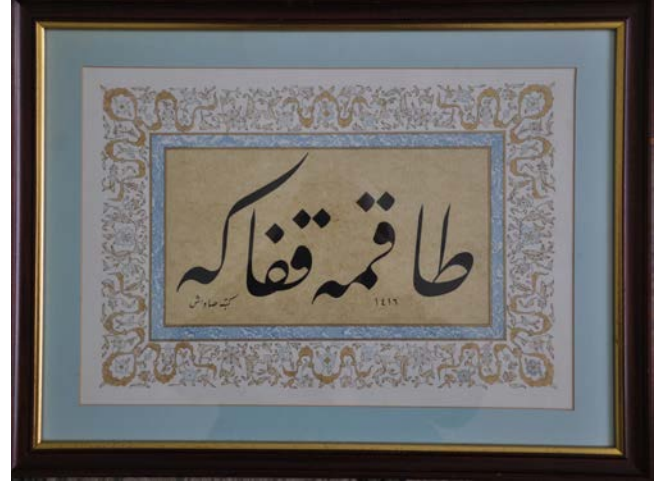 طاقمه قفاكه
١٤١٦
كتبه